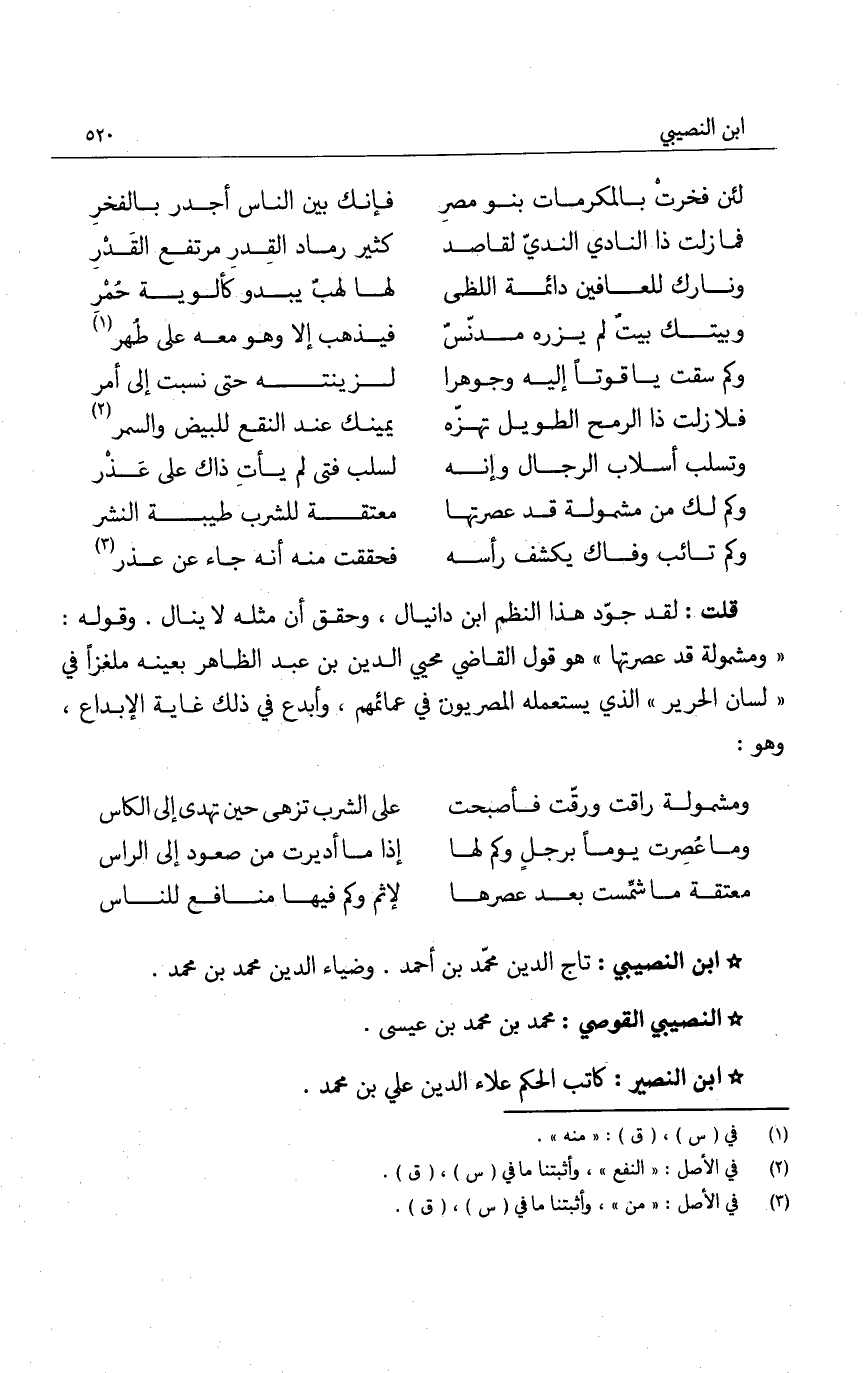 ابن النصيبي ٥٢٠
لئن فخرتْ بالمكرمات بنو مصرِ فإنك بين الناس أجدر بالفخرِ
فما زلت ذا النادي النديّ لقاصد كثير رماد القِدرِ مرتفع القَدْرِ
ونارك للعافين دائمة اللظى لها لهبٌ يبدو كألوية حُمْرِ
وبيتك بيتٌ لم يزره مدنّسٌ فيذهب إلا وهو معه على طُهرِ(١)
وكم سقت ياقوتاً إليه وجوهرا لزينته حتى نسبت إلى أمر
فلا زلت ذا الرمح الطويل تهزّه يمينك عند النقع للبيض والسمر(٢)
وتسلب أسلاب الرجال وإنه لسلب فتى لم يأتِ ذاك على عَذْرِ
وكم لك من مشمولة قد عصرتها معتقة للشرب طيبة النشر
وكم تائب وفاك يكشف رأسه فحققت منه أنه جاء عن عذر(٣)
قلت : لقد جوّد هذا النظم ابن دانيال ، وحقق أن مثله لا ينال . وقوله :
« ومشمولة قد عصرتها » هو قول القاضي محيي الدين بن عبد الظاهر بعينه ملغزاً في
« لسان الحرير » الذي يستعمله المصريون في عمائمهم ، وأبدع في ذلك غاية الإبداع ،
وهو :
ومشمولة راقت ورقّت فأصبحت على الشرب تزهى حين تهدى إلى الكاس
وما عُصِرت يوماً برجلٍ وكم لها إذا ما أديرت من صعود إلى الراس
معتقة ما شمّست بعد عصرها لإثم وكم فيها منافع للناس
☆ ابن النصيبي : تاج الدين محمّد بن أحمد . وضياء الدين محمد بن محمد .
☆ النصيبي القوصي : محمد بن محمد بن عيسى .
☆ ابن النصير : كاتب الحكم علاء الدين علي بن محمد .
(١) في ( س ) ، ( ق ) : « منه » .
(٢) في الأصل : « النفع » ، وأثبتنا ما في ( س ) ، ( ق ) .
(٣) في الأصل : « من » ، وأثبتنا ما في ( س ) ، ( ق ) .